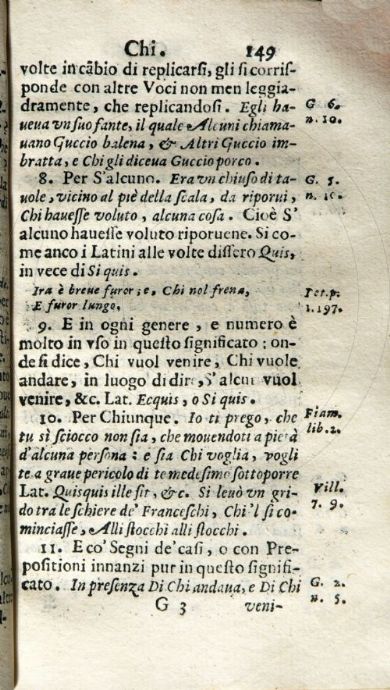 Chi. 149
volte in cãbio di replicarsi, gli si corriſ-
ponde con altre Voci non men leggia-
dramente, che replicandosi. Egli ha- G. 6.
ueua vn ſuo fante, il quale Alcuni chiama- n. 10.
uano Guccio balena, & Altri Guccio im-
bratta, e Chi gli diceua Guccio porco.
8. Per S'alcuno. Era vn chiuſo di ta- G. 5.
uole, vicino al piè della ſcala, da riporui,
Chi haueſſe voluto, alcuna coſa. Cioè S'
alcuno haueſſe voluto riporuene. Si co-
me anco i Latini alle volte diſſero Quis,
in vece di Si quis.
Ira è breue furor; e, Chi nol frena, Pet. p.
E furor lungo. 1. 197.
9. E in ogni genere, e numero è
molto in vſo in queſto ſignificato: on-
de ſi dice, Chi vuol venire, Chi vuole
andare, in luogo di dire, S'alcun vuol
venire, &c. Lat. Ecquis, o Si quis.
10. Per Chiunque. Io ti prego, che Fiam.
tu sì ſciocco non ſia, che mouendoti a pietà lib. 2.
d'alcuna perſona: e ſia Chi voglia, vogli
te a graue pericolo di te medeſimo ſottoporre
Lat. Quisquis ille ſit, &c. Si leuò vn gri- Vill.
do tra le ſchiere de' Franceſchi, Chi 'l ſi co- 7. 9.
minciaſſe, Alli ſtocchi alli ſtocchi.
11. E co' Segni de' caſi, o con Pre-
poſitioni innanzi pur in queſto ſignifi-
cato. In preſenza Di Chi andaua, e Di Chi G. 2.
G 3 veni- n. 5.